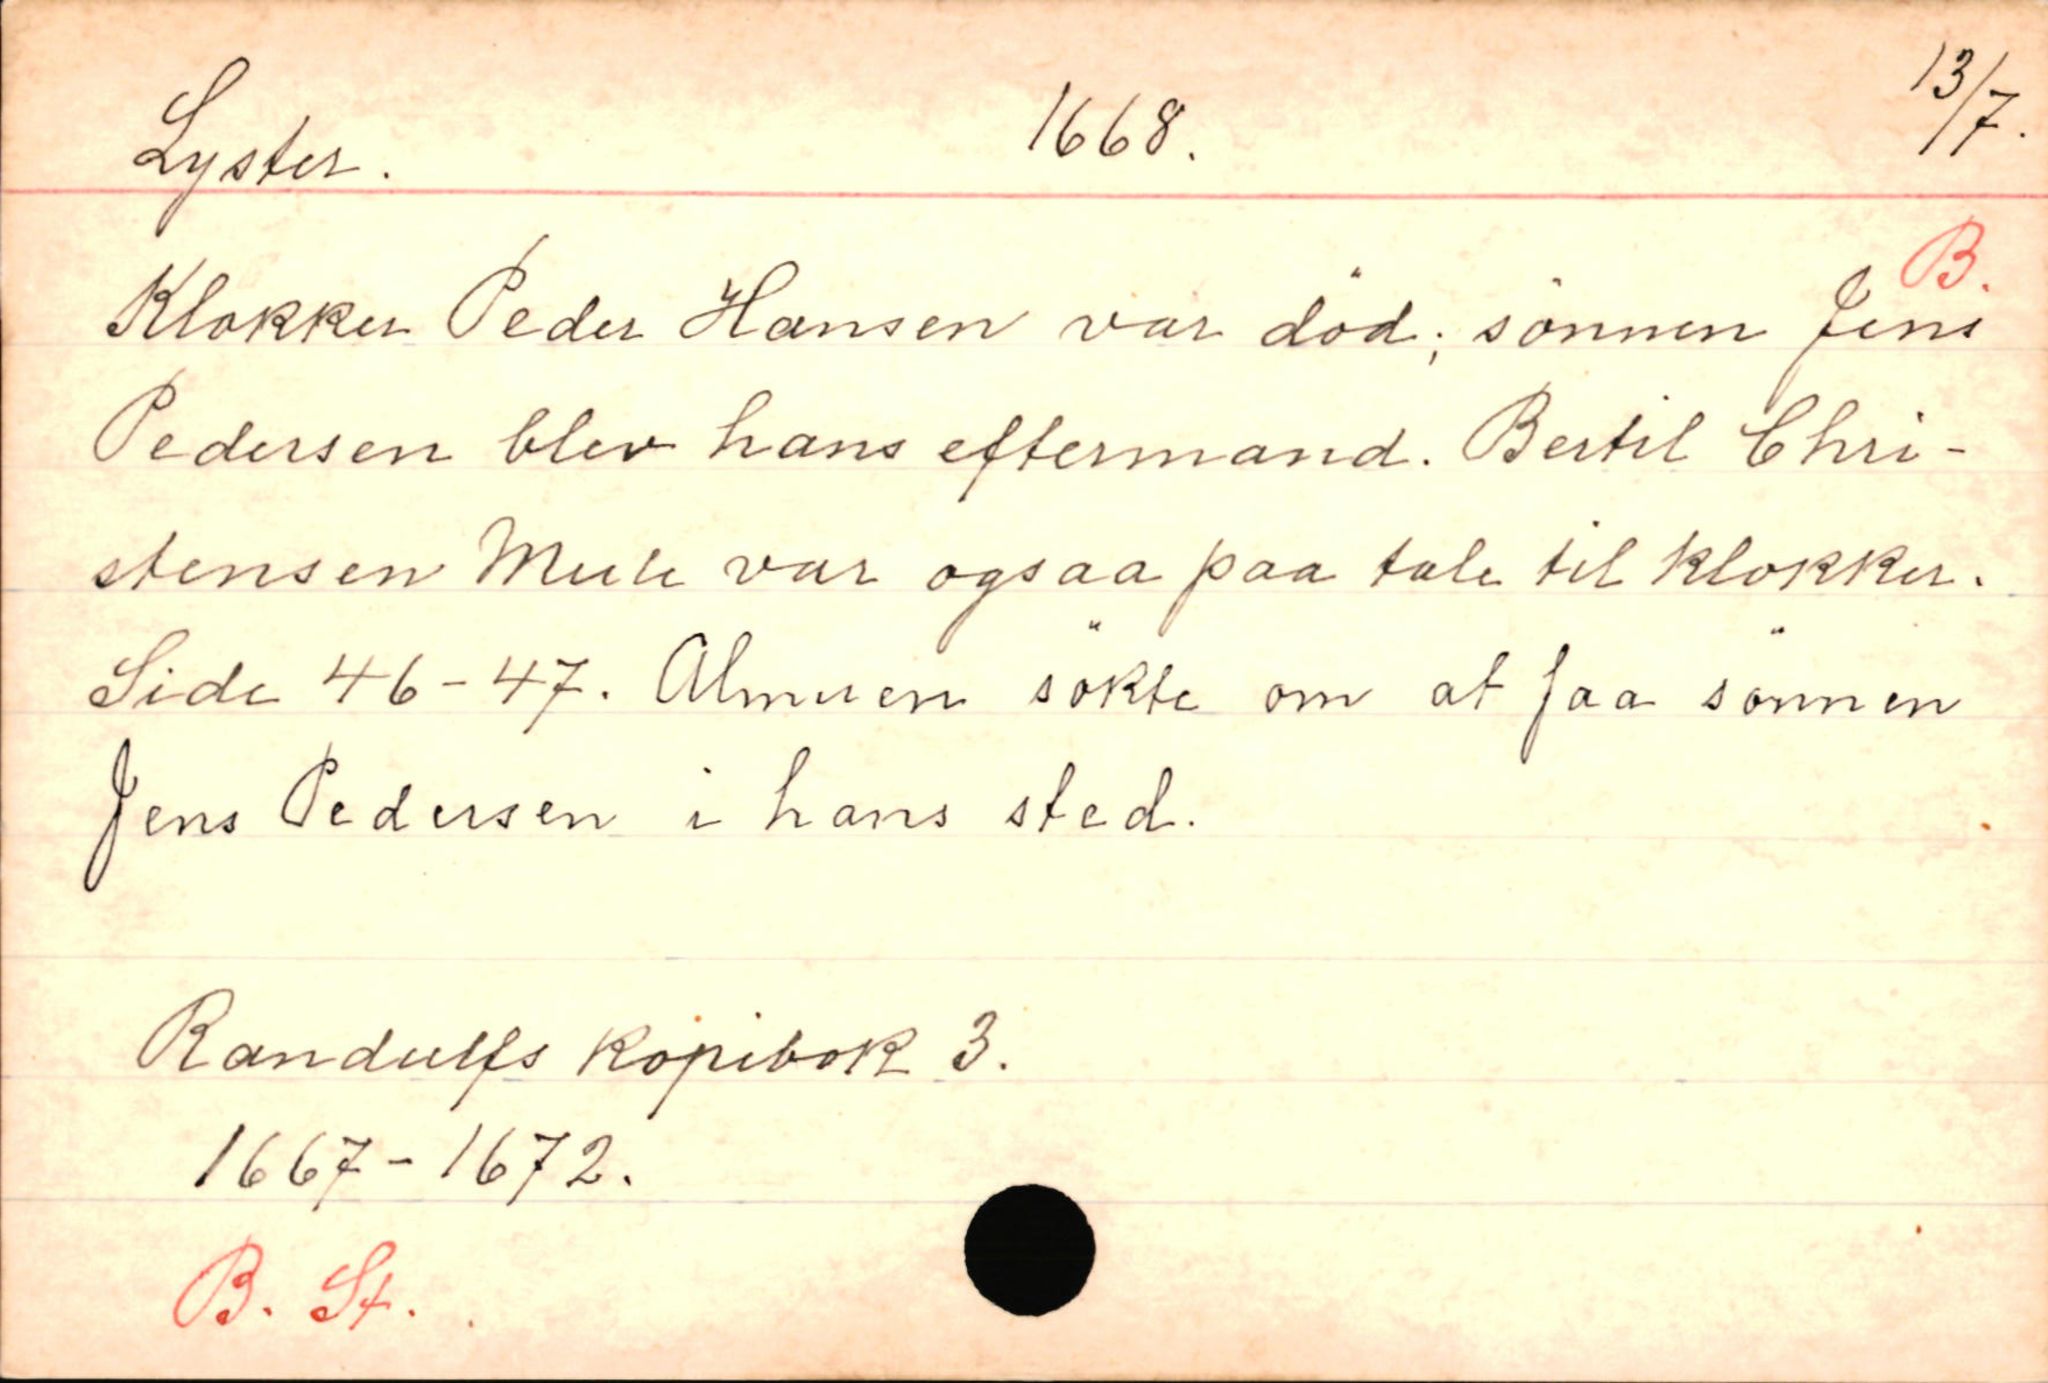 Lyster. 1668. 13/7.
B.
Klokker Peder Hansen var död; sönnen Jens
Pedersen blev hans eftermand. Bertil Chri-
stensen Mule var ogsaa paa tale til klokker.
Side 46-47. Almuen sökte om at faa sönnen
Jens Pedersen i hans sted.
Randulfs kopibok 3.
1667-1672.
B. St.